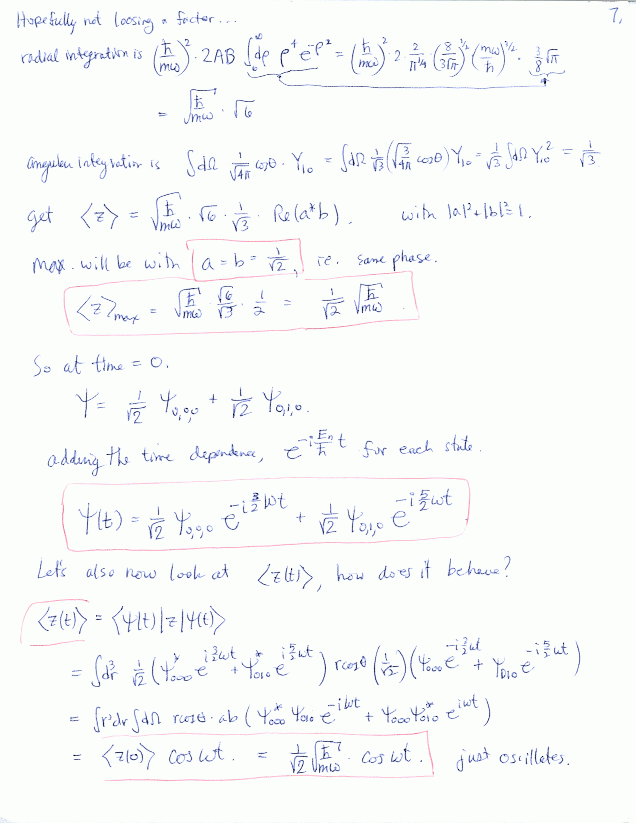 7,
Hopefully not loosing a factor...
radial integration is (ħ/mω)² · 2AB ∫₀^∞ dρ ρ⁴ e^{-ρ²} = (ħ/mω)² · 2 · 2/π^{1/4} (8/3√π)^{1/2} (mω/ħ)^{3/2} · 3/8 √π
= √(ħ/mω) · √6
angular integration is ∫dΩ 1/√4π cosθ · Y₁₀ = ∫dΩ 1/√3 (√(3/4π) cosθ) Y₁₀ = 1/√3 ∫dΩ Y₁₀² = 1/√3
get ⟨z⟩ = √(ħ/mω) · √6 · 1/√3 · Re(a*b). with |a|²+|b|²=1.
max. will be with a = b = 1/√2, ie. same phase.
⟨z⟩max = √(ħ/mω) · √6/√3 · 1/2 = 1/√2 √(ħ/mω).
So at time = 0.
Ψ = 1/√2 Ψ₀,₀,₀ + 1/√2 Ψ₀,₁,₀.
adding the time dependence, e^{-i Eₙ/ħ t} for each state.
Ψ(t) = 1/√2 Ψ₀,₀,₀ e^{-i 3/2 ωt} + 1/√2 Ψ₀,₁,₀ e^{-i 5/2 ωt}
Let's also now look at ⟨z(t)⟩, how does it behave?
⟨z(t)⟩ = ⟨Ψ(t)|z|Ψ(t)⟩
= ∫d³r 1/√2 (Ψ₀₀₀* e^{i 3/2 ωt} + Ψ₀₁₀* e^{i 5/2 ωt}) r cosθ (1/√2) (Ψ₀₀₀ e^{-i 3/2 ωt} + Ψ₀₁₀ e^{-i 5/2 ωt})
= ∫r²dr ∫dΩ r cosθ · ab (Ψ₀₀₀* Ψ₀₁₀ e^{-iωt} + Ψ₀₀₀ Ψ₀₁₀* e^{iωt})
= ⟨z(0)⟩ cos ωt. = 1/√2 √(ħ/mω) · cos ωt. just oscillates.